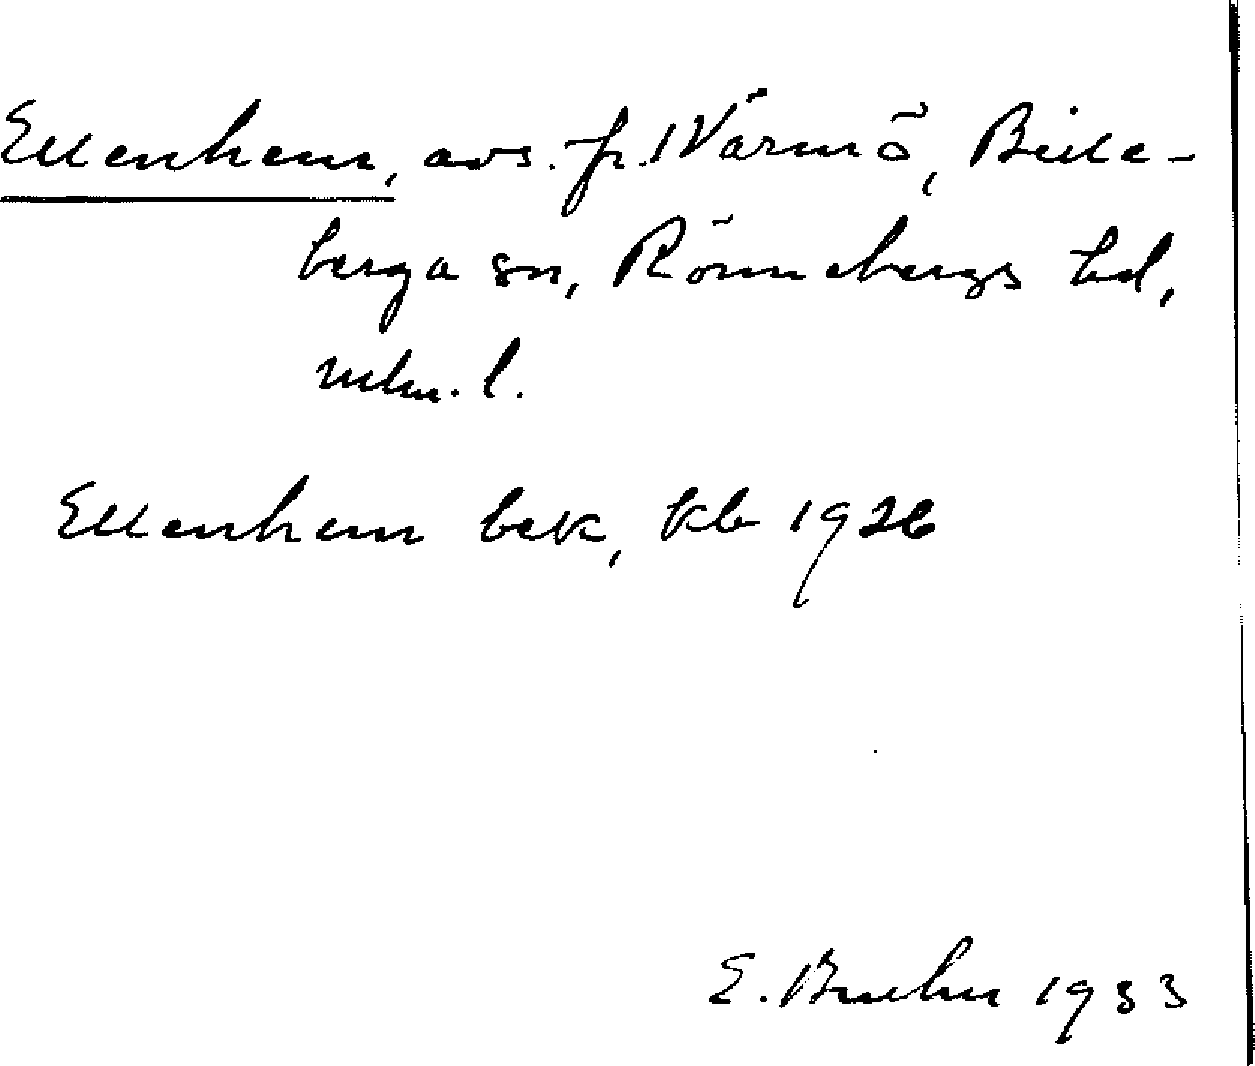 Ellenhem, avs. fr. Värmö, Bille-
berga sn, Rönnebergs hd,
mlm. l.
Ellenhem bek, kb 1926
E. Bruhn 1933